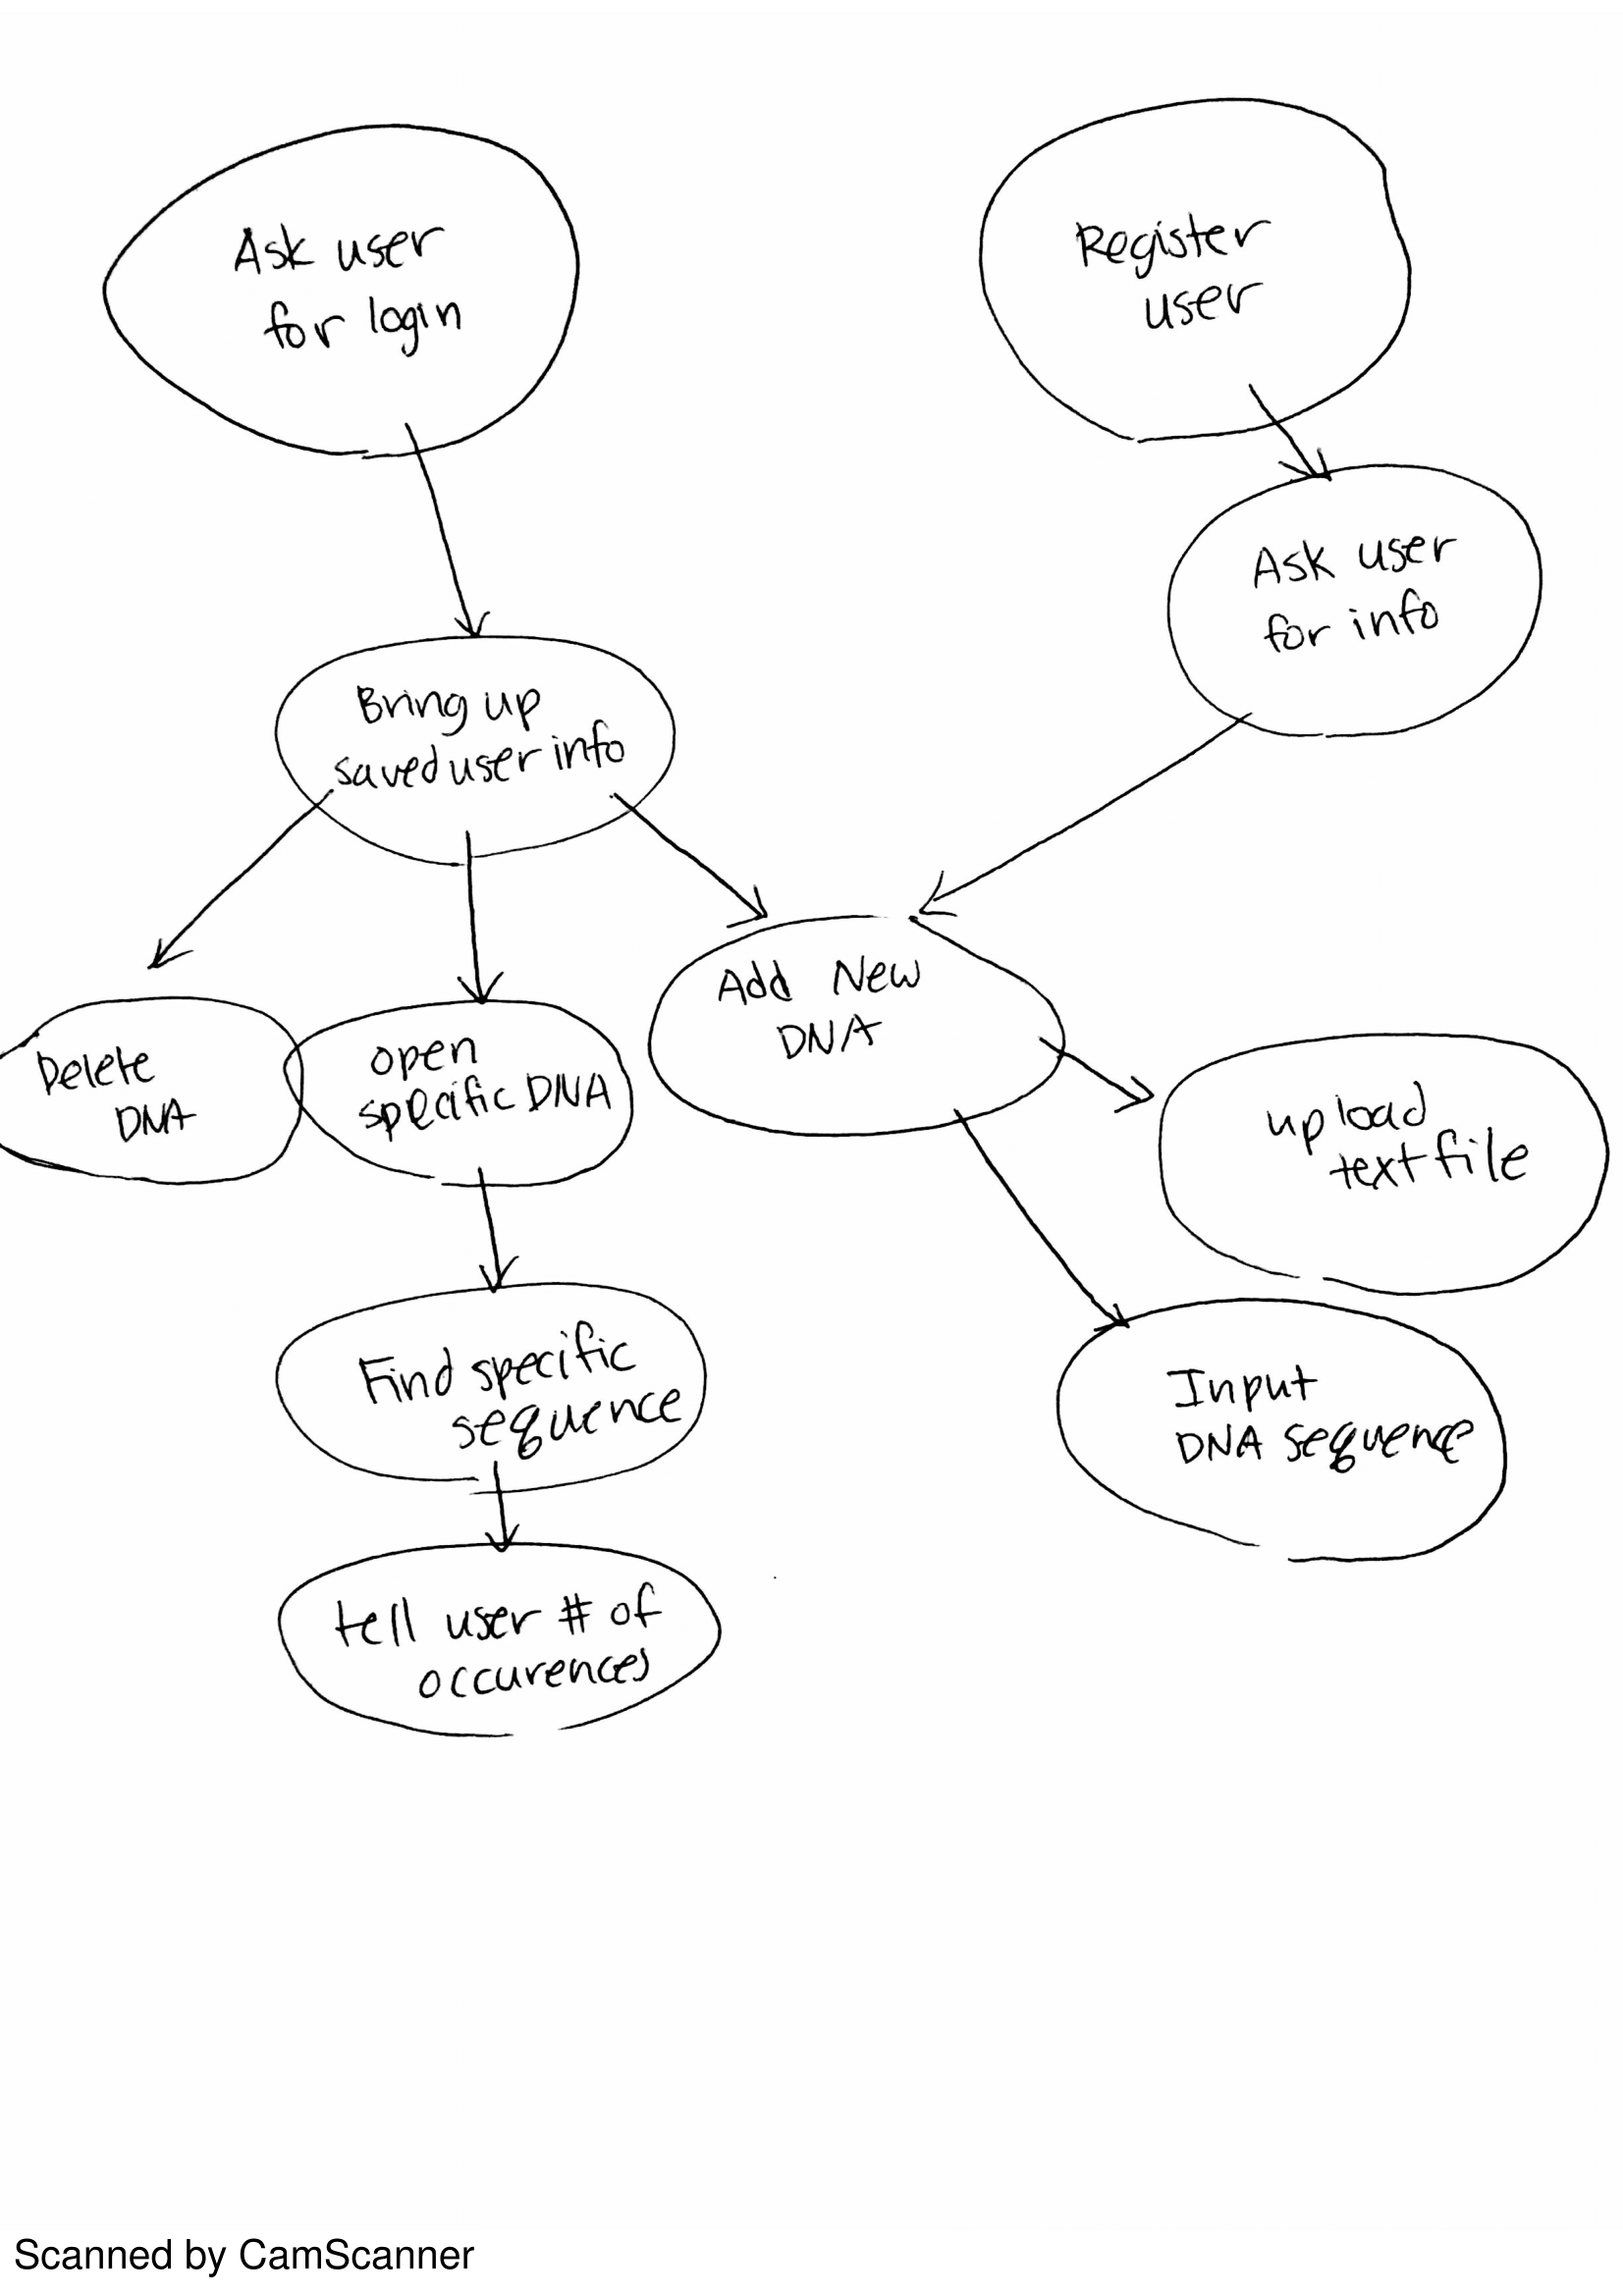 Ask user
for login
Register
user
Ask user
for info
Bring up
saved user info
Delete
DNA
open
specific DNA
Add New
DNA
upload
text file
Find specific
sequence
Input
DNA sequence
tell user # of
occurences
Scanned by CamScanner